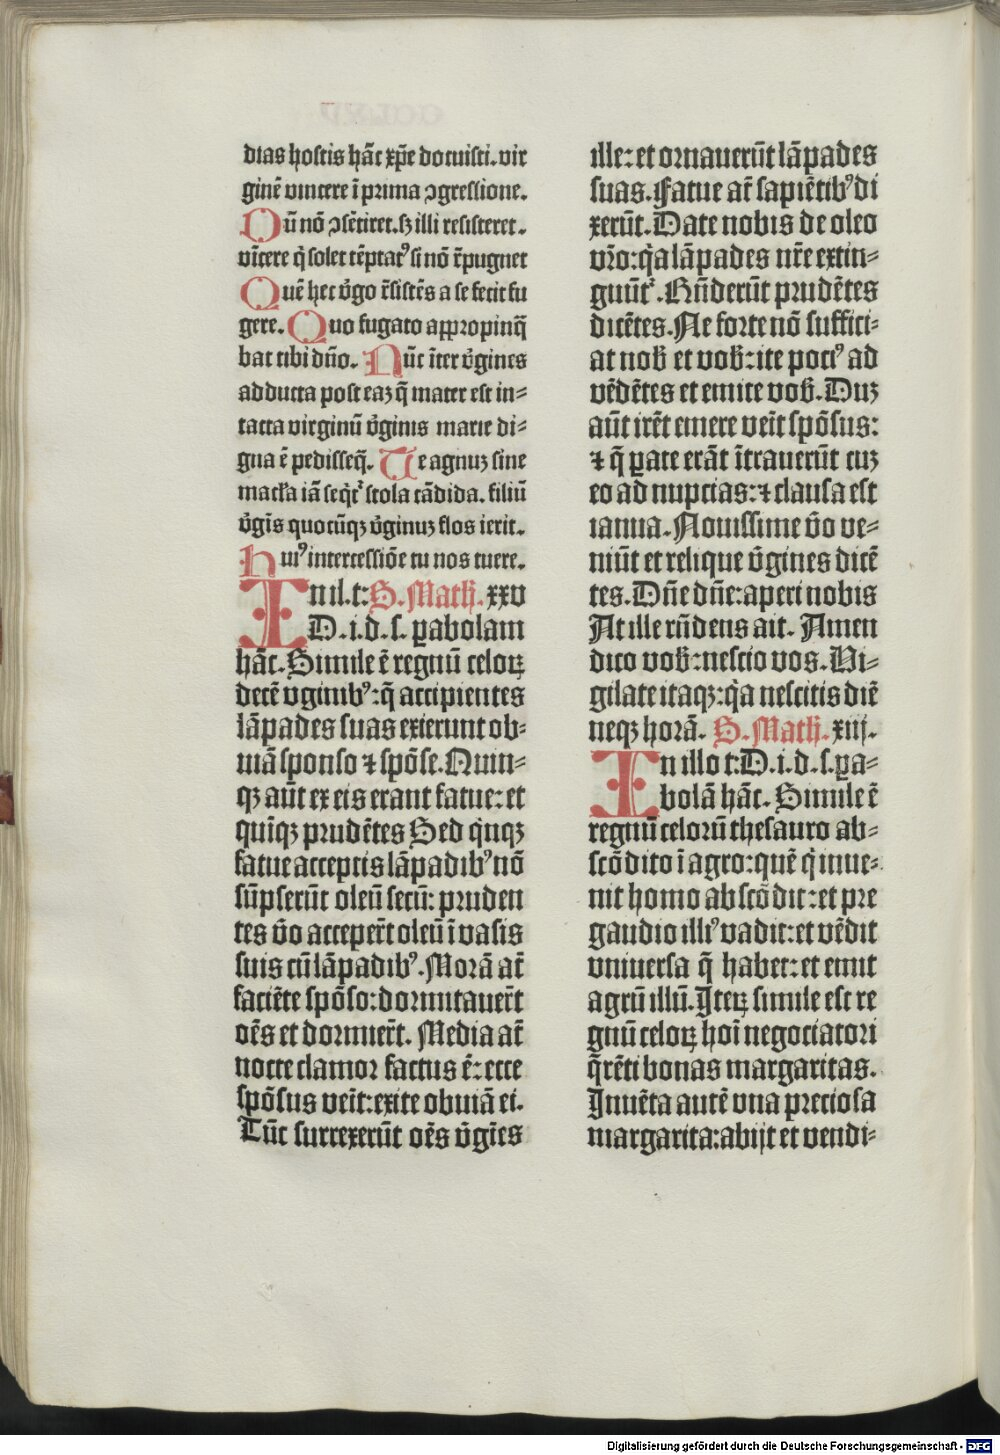 dias hostis hãc xp̃e docuisti. vir
ginẽ vincere ĩ prima ↄgressione.
Qũ nõ ↄsẽtiret. sꝫ illi resisteret.
vĩcere q̇ solet tẽptatꝰ si nõ r̃pugnet
Quẽ hec v̾go r̃sistẽs a se fecit fu
gere. Quo fugato appropinq̃
bat tibi dño. Nũc ĩter v̾gines
adducta post eaꝫ q̃ mater est in⸗
tacta virginũ v̾ginis marie di⸗
gna ẽ pedisseq̃. Ue agnuꝫ sine
macl̃a iã seq̇tᷣ stola cãdida. filiũ
v̾gĩs quocũqꝫ v̾ginuꝫ flos ierit.
Huiꝰ intercessiõe tu nos tuere.
In il. t: S. Math̃. xxv
D. i. d. s. ꝑabolam
hãc. Simile ẽ regnũ celoꝝ
decẽ v̾ginibꝰ: q̃ accipientes
lãpades suas exierunt ob⸗
uiã sponso ⁊ spõse. Quin⸗
qꝫ aũt ex eis erant fatue: et
quĩqꝫ prudẽtes Sed q̇nqꝫ
fatue acceptis lãpadibꝰ nõ
sũpserũt oleũ secũ: pruden
tes v̾o accepert̃ oleũ ĩ vasis
suis cũ lãpadibꝰ. Morã at̃
faciẽte spõso: dormitauert̃
oẽs et dormiert̃. Media at̃
nocte clamor factus ẽ: ecce
spõsus veĩt: exite obuiã ei.
Tũc surrexerũt oẽs v̾gĩes
ille: et ornauerũt lãpades
suas. Fatue at̃ sapiẽtibꝰ di
xerũt. Date nobis de oleo
vr̃o: q̇a lãpades nr̃e extin⸗
guũtᷣ. Rñderũt prudẽtes
dicẽtes. Ne forte nõ suffici⸗
at nob̃ et vob̃: ite pociꝰ ad
vẽdẽtes et emite vob̃. Duꝫ
aũt irẽt emere veĩt spõsus:
⁊ q̃ ꝑate erãt ĩtrauerũt cuꝫ
eo ad nupcias: ⁊ clausa est
ianua. Nouissime v̾o ve⸗
niũt et relique v̾gines dicẽ
tes. Dñe dñe: aperi nobis
At ille rñdens ait. Amen
dico vob̃: nescio vos. Vi⸗
gilate itaqꝫ: q̇a nescitis diẽ
neqꝫ horã. S. Math̃. xiij.
In illo t: D. i. d. s. ꝑa⸗
bolã hãc. Simile ẽ
regnũ celorũ thesauro ab⸗
scõdito ĩ agro: quẽ q̇ inue⸗
nit homo abscõdit: et pre
gaudio illiꝰ vadit: et vẽdit
vniuersa q̃ habet: et emit
agrũ illũ. Iteꝝ simile est re
gnũ celoꝝ hoĩ negociatori
q̃rẽti bonas margaritas.
Inuẽta autẽ vna preciosa
margarita: abijt et vendi⸗
Digitalisierung gefördert durch die Deutsche Forschungsgemeinschaft - DFG